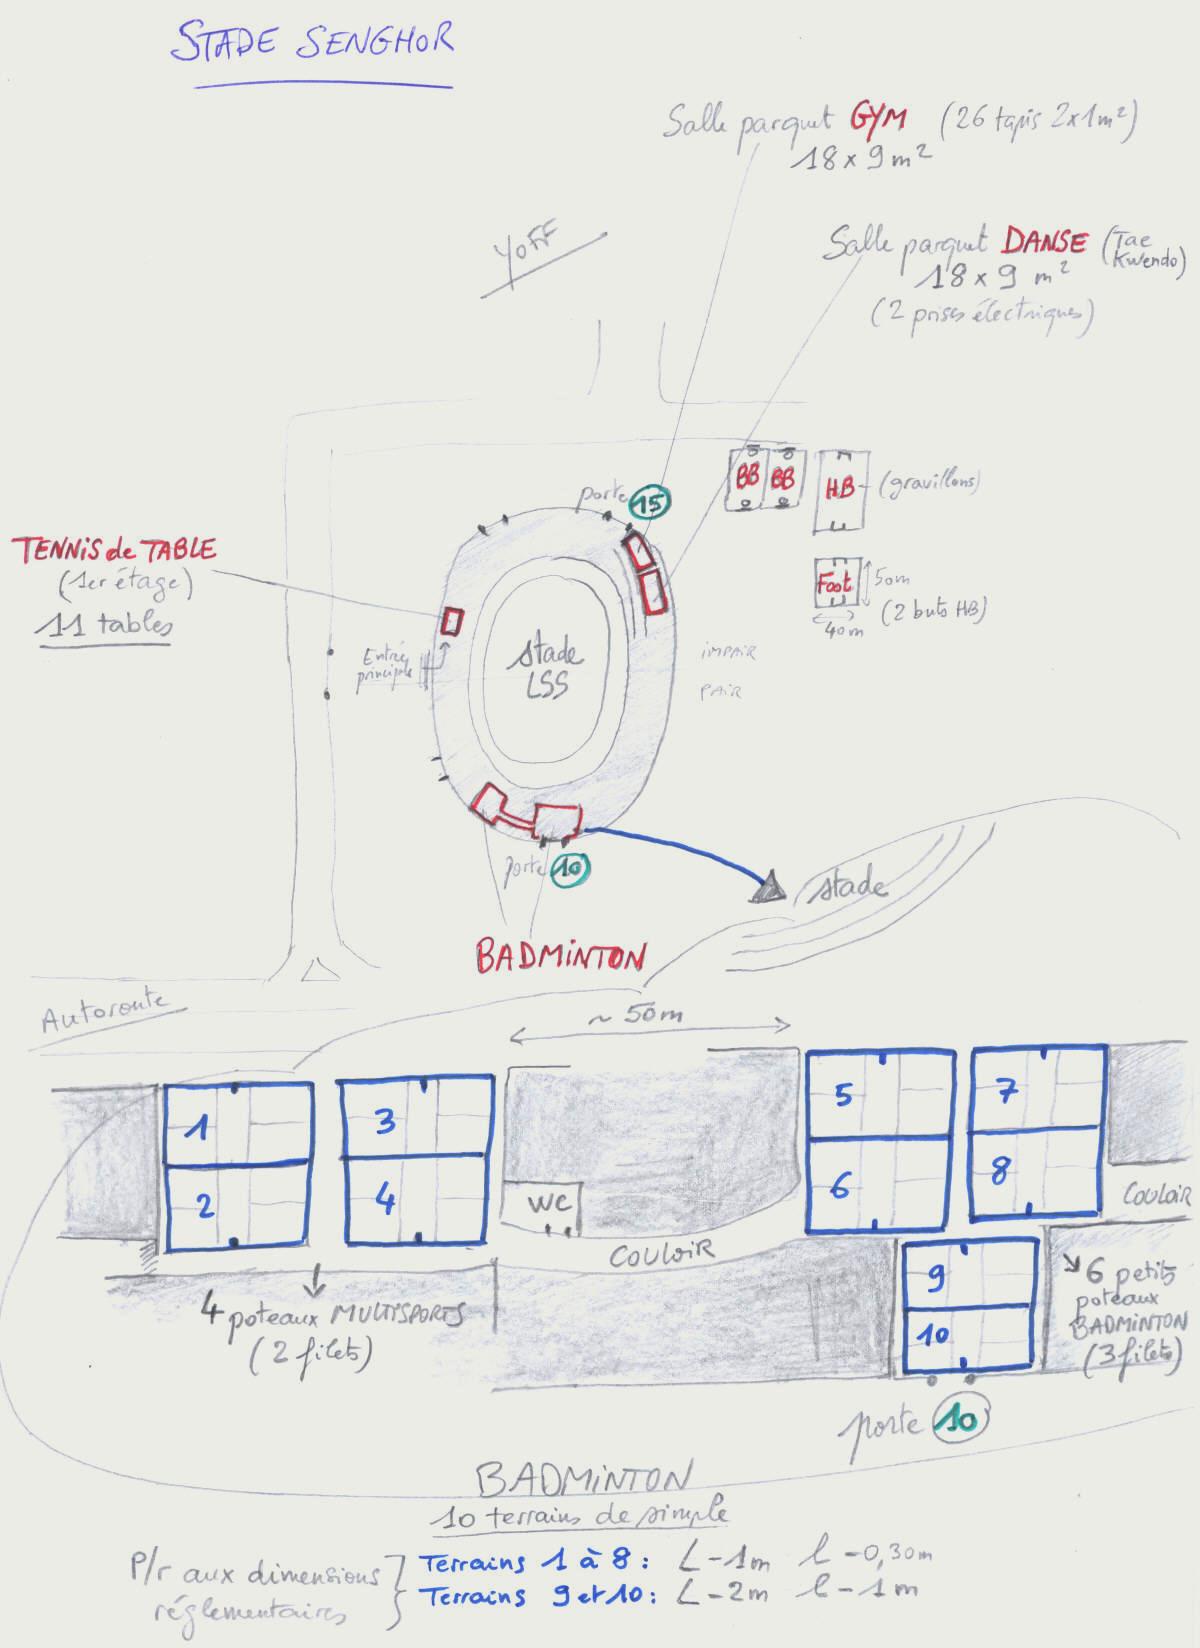 STADE SENGHOR
Salle parquet GYM (26 tapis 2x1m²)
18 x 9 m²
YOFF
Salle parquet DANSE (Tae Kwendo)
18 x 9 m²
(2 prises électriques)
BB BB HB (gravillons)
porte 15
TENNIS de TABLE
(1er étage)
11 tables
Foot 50m
40m (2 buts HB)
Entrée principale
Stade
LSS
IMPAIR
PAIR
porte 10
stade
BADMINTON
Autoroute
~ 50m
1 3 5 7
2 4 6 8
WC
COULOIR
COULOIR
9
10
4 poteaux MULTISPORTS
(2 filets)
6 petits
poteaux
BADMINTON
(3 filets)
porte 10
BADMINTON
10 terrains de simple
P/r aux dimensions
réglementaires
Terrains 1 à 8 : L - 1m l - 0,30m
Terrains 9 et 10 : L - 2m l - 1m